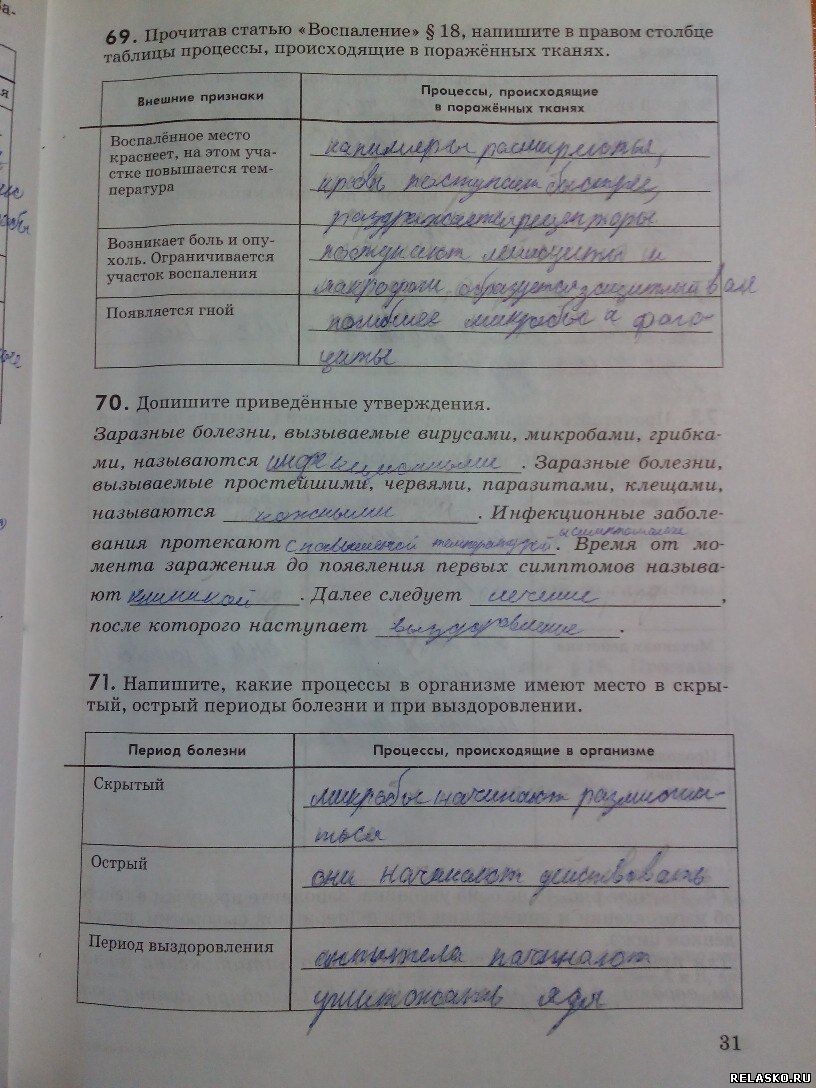 69. Прочитав статью «Воспаление» § 18, напишите в правом столбце
таблицы процессы, происходящие в поражённых тканях.
Внешние признаки
Процессы, происходящие
в поражённых тканях
Воспалённое место
краснеет, на этом уча-
стке повышается тем-
пература
капилляры расширяются,
кровь поступает быстрее,
раздражаются рецепторы
Возникает боль и опу-
холь. Ограничивается
участок воспаления
поступают лейкоциты и
макрофаги образуется защитный вал
Появляется гной
погибшее микробы и фаго
циты
70. Допишите приведённые утверждения.
Заразные болезни, вызываемые вирусами, микробами, грибка-
ми, называются инфекционными. Заразные болезни,
вызываемые простейшими, червями, паразитами, клещами,
называются кожными. Инфекционные заболе-
вания протекают с повышеной температурой и симптомами. Время от мо-
мента заражения до появления первых симптомов называ-
ют клиникой. Далее следует лечение,
после которого наступает выздоровление.
71. Напишите, какие процессы в организме имеют место в скры-
тый, острый периоды болезни и при выздоровлении.
Период болезни
Процессы, происходящие в организме
Скрытый
микробы начинают размножа-
ться
Острый
они начинают действовать
Период выздоровления
антитела начинают
уничтожать яды
31
RELASKO.RU